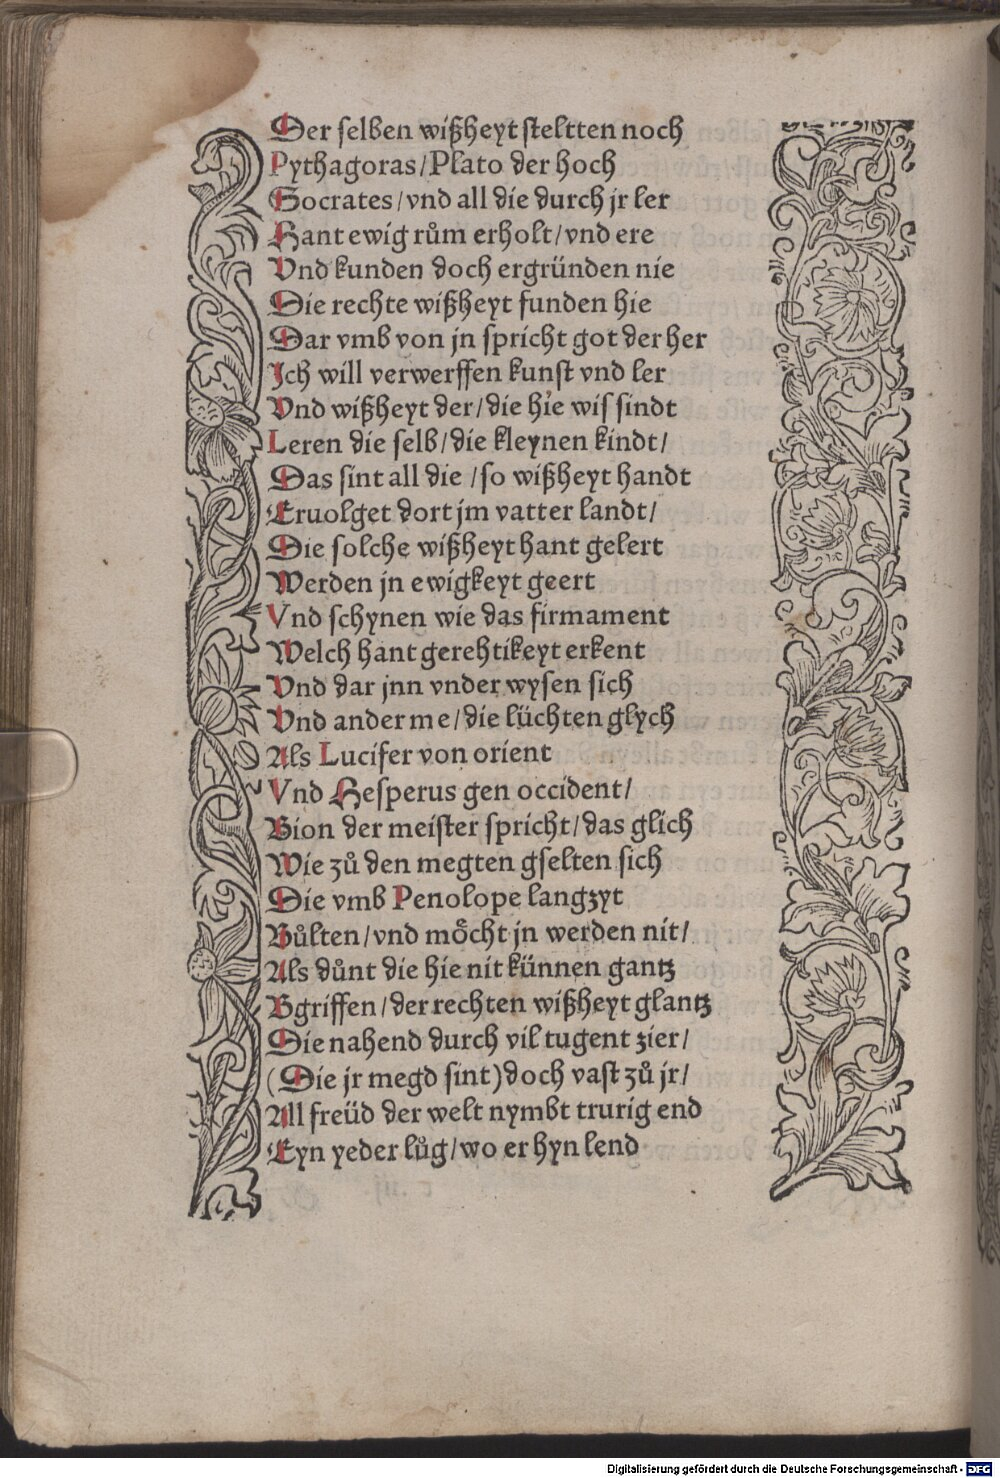 Der selben wißheyt steltten noch
Pythagoras/Plato der hoch
Socrates/vnd all die durch jr ler
Hant ewig rům erholt/vnd ere
Vnd kunden doch ergründen nie
Die rechte wißheyt funden hie
Dar vmb von jn spricht got der her
Ich will verwerffen kunst vnd ler
Vnd wißheyt der/die hie wis sindt
Leren die selb/die kleynen kindt/
Das sint all die /so wißheyt handt
Eruolget dort jm vatter landt/
Die solche wißheyt hant gelert
Werden jn ewigkeyt geert
Vnd schynen wie das firmament
Welch hant gerehtikeyt erkent
Vnd dar jnn vnder wysen sich
Vnd ander me/die lüchten glych
Als Lucifer von orient
Vnd Hesperus gen occident/
Bion der meister spricht/das glich
Wie zů den megten gselten sich
Die vmb Penolope langzyt
Bůlten/vnd möcht jn werden nit/
Als důnt die hie nit künnen gantz
Bgriffen/der rechten wißheyt glantz
Die nahend durch vil tugent zier/
(Die jr megd sint) doch vast zů jr/
All freüd der welt nymbt trurig end
Eyn yeder lůg/wo er hyn lend
Digitalisierung gefördert durch die Deutsche Forschungsgemeinschaft - DFG